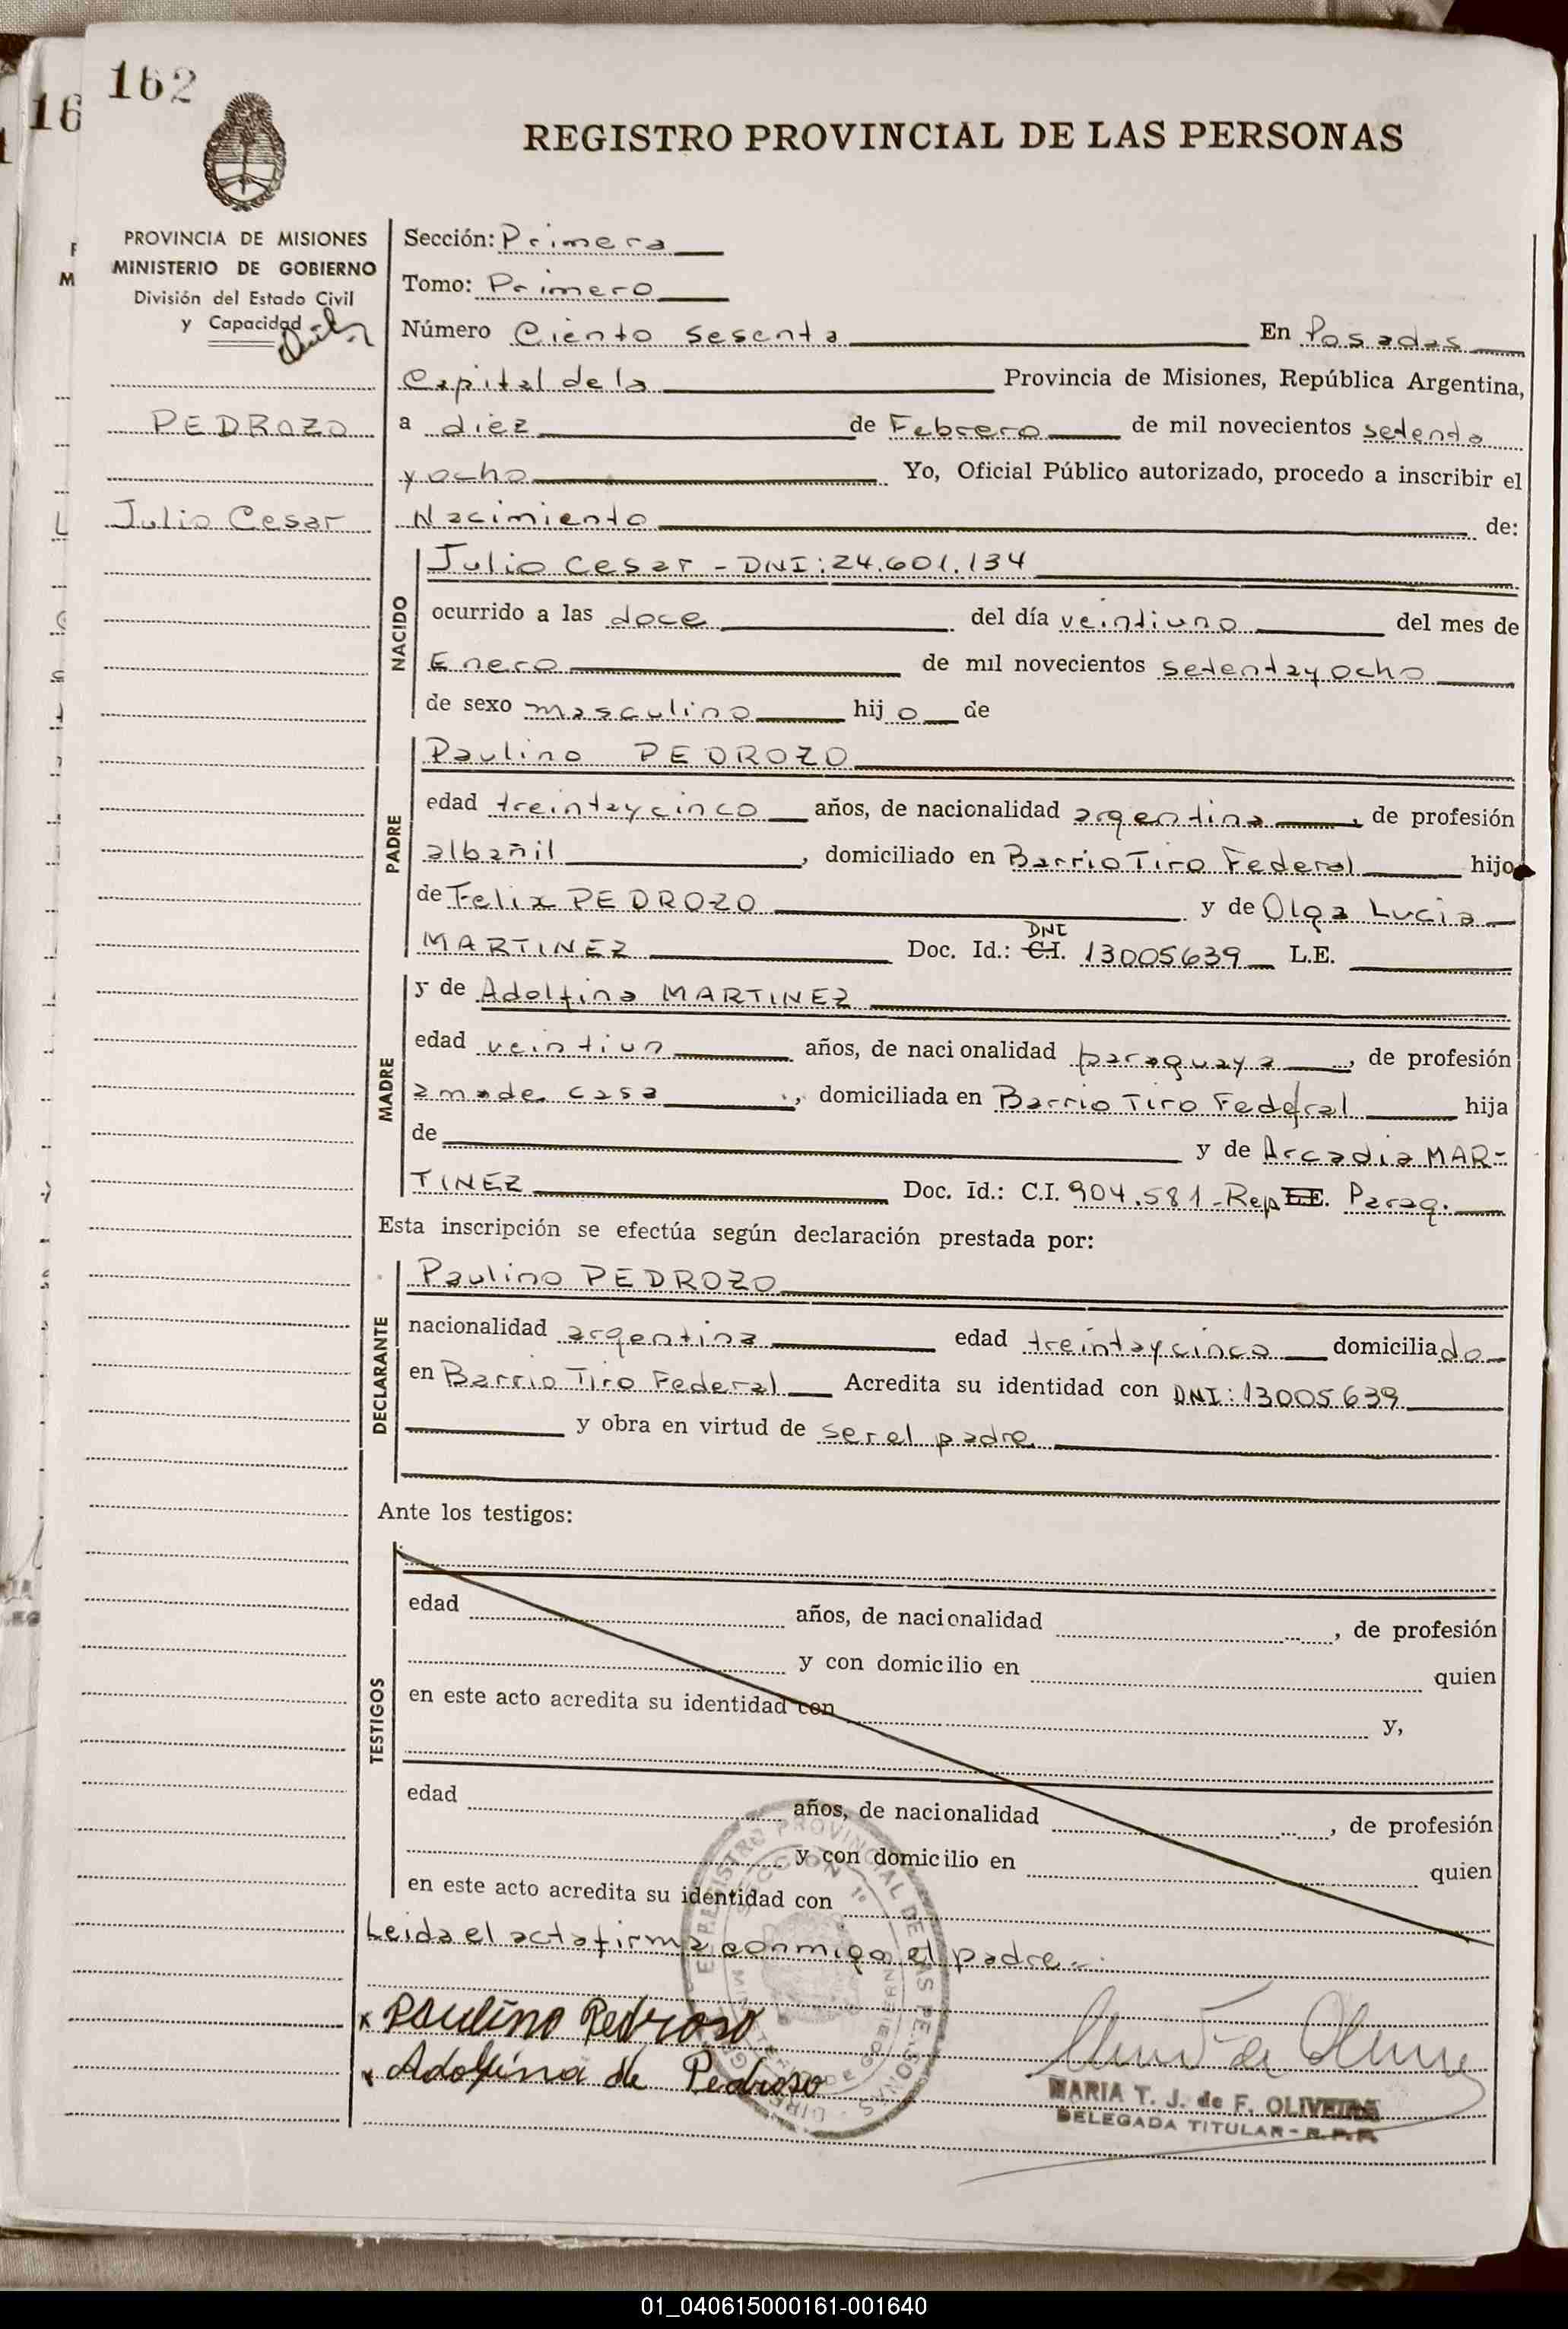 162
16
REGISTRO PROVINCIAL DE LAS PERSONAS
PROVINCIA DE MISIONES
MINISTERIO DE GOBIERNO
División del Estado Civil
y Capacidad
PEDROZO
Julio Cesar
Sección: Primera
Tomo: Primero
Número Ciento sesenta En Posadas
Capital de la Provincia de Misiones, República Argentina,
a diez de Febrero de mil novecientos setenta
y ocho Yo, Oficial Público autorizado, procedo a inscribir el
Nacimiento de:
NACIDO
Julio Cesar - DNI: 24.601.134
ocurrido a las doce del día veintiuno del mes de
Enero de mil novecientos setenta y ocho
de sexo masculino hij o de
PADRE
Paulino PEDROZO
edad treinta y cinco años, de nacionalidad argentina, de profesión
albañil, domiciliado en Barrio Tiro Federal hijo
de Felix PEDROZO y de Olga Lucia
DNI
MARTINEZ Doc. Id.: C.I. 13005639 L.E.
MADRE
y de Adolfina MARTINEZ
edad veintiun años, de nacionalidad paraguaya, de profesión
ama de casa, domiciliada en Barrio Tiro Federal hija
de y de Arcadia MAR-
TINEZ Doc. Id.: C.I. 904.581-Rep L.E. Parag.
Esta inscripción se efectúa según declaración prestada por:
DECLARANTE
Paulino PEDROZO
nacionalidad argentina edad treinta y cinco domiciliado
en Barrio Tiro Federal Acredita su identidad con DNI: 13005639
y obra en virtud de ser el padre
Ante los testigos:
TESTIGOS
edad años, de nacionalidad , de profesión
y con domicilio en quien
en este acto acredita su identidad con y,
edad años, de nacionalidad , de profesión
y con domicilio en quien
en este acto acredita su identidad con
Leida el acta firma conmigo el padre
x Paulino Pedroso
x Adolfina de Pedroso
MARIA T. J. de F. OLIVEIRA
DELEGADA TITULAR - R.P.P.
01_040615000161-001640